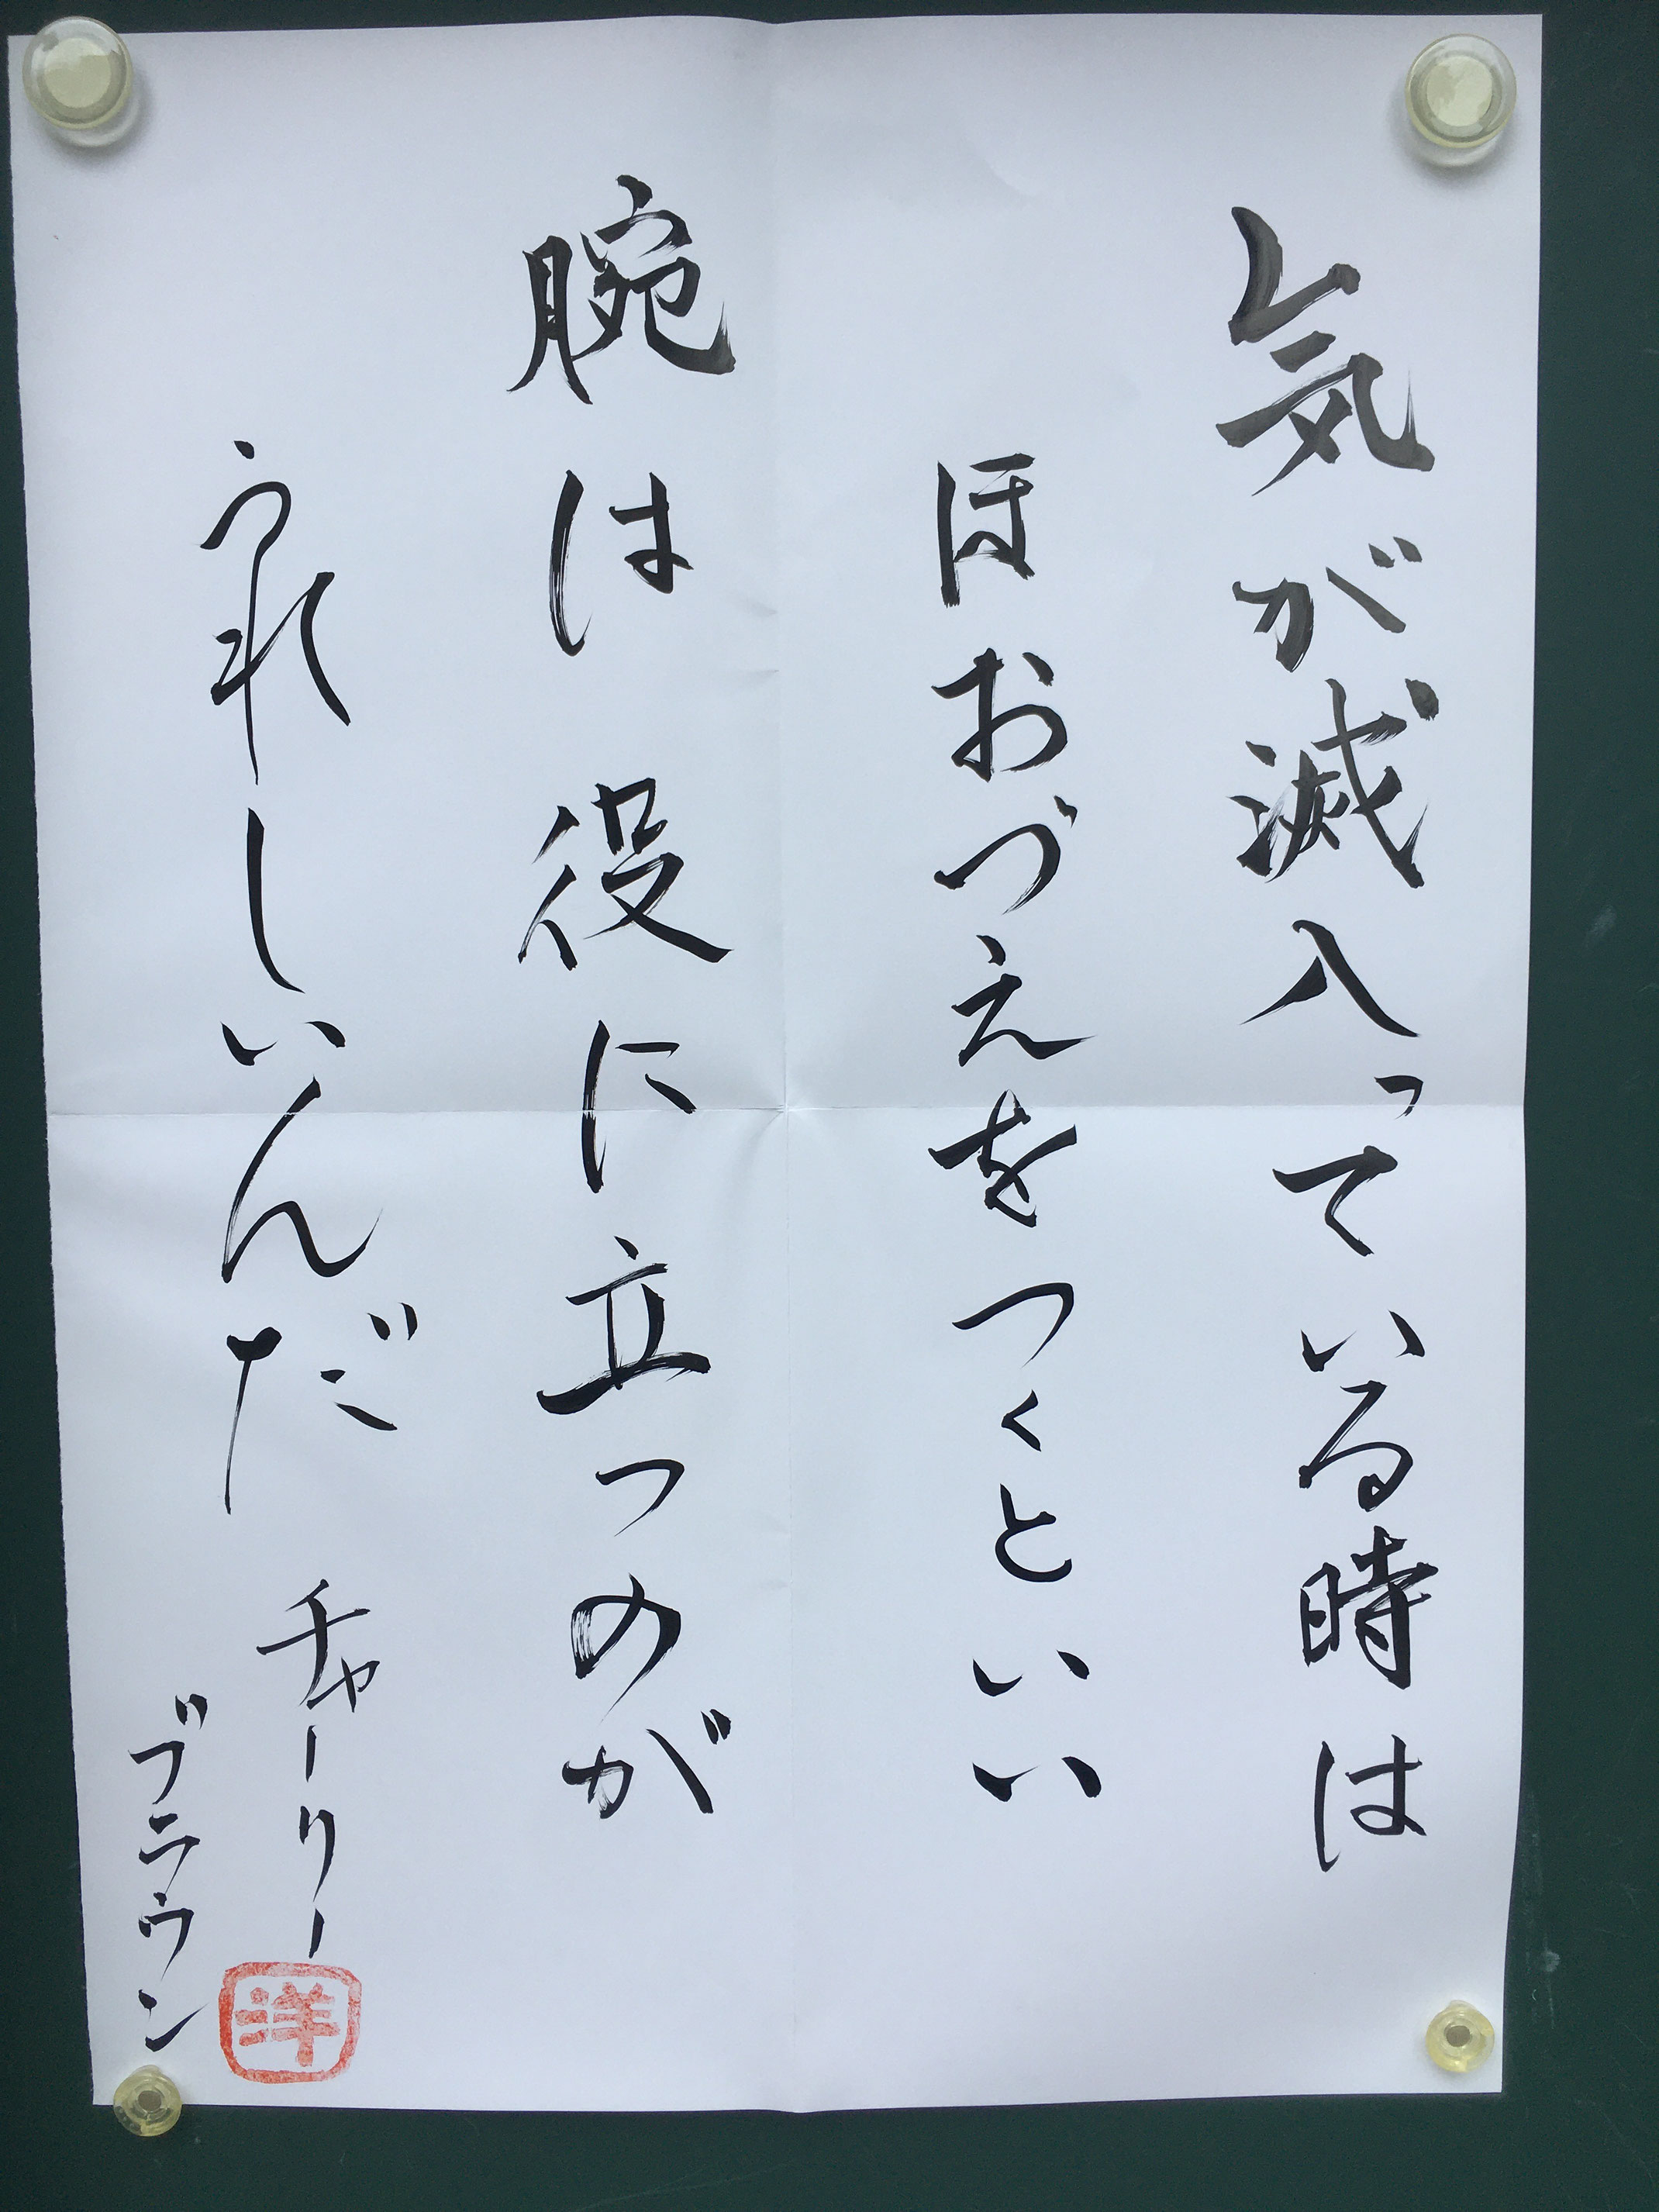 気が滅入っている時は
ほおづえをつくといい
腕は役に立つのが
うれしいんだ
チャーリー
ブラウン
洋